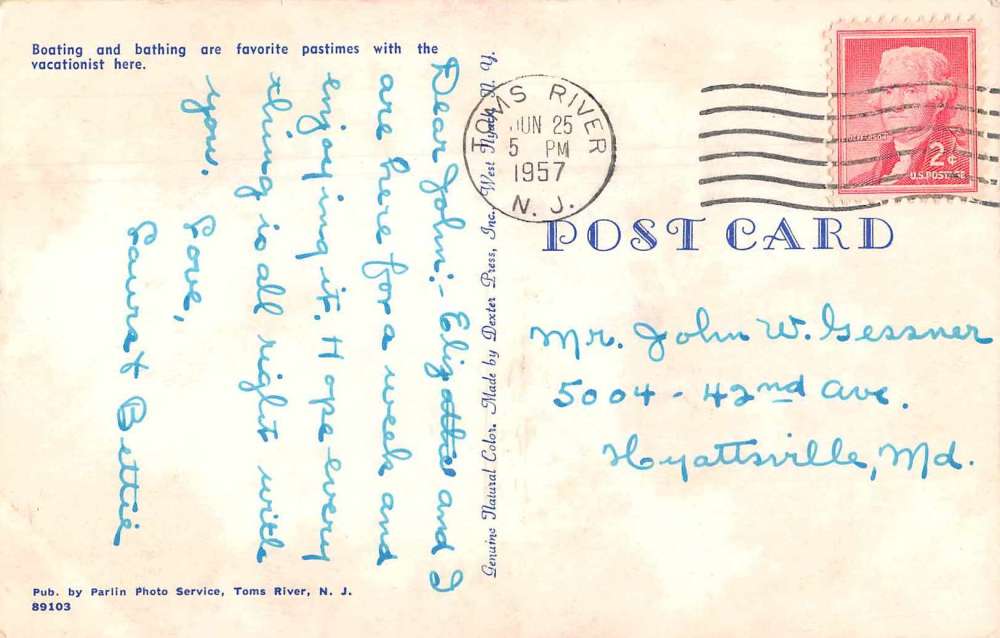 Boating and bathing are favorite pastimes with the
vacationist here.
Dear John:- and I
are here for a week and
enjoying it. Hope every
thing is all right with
you.
Love,
& Bettie
Pub. by Parlin Photo Service, Toms River, N. J.
89103
Genuine Natural Color. Made by Dexter Press, Inc., West Nyack, N. Y.
TOMS RIVER
JUN 25
5 PM
1957
N. J.
JEFFERSON
2¢
U.S. POSTAGE
POST CARD
Mr. John W. Gessner
5004 - 42nd Ave.
Hyattsville, Md.